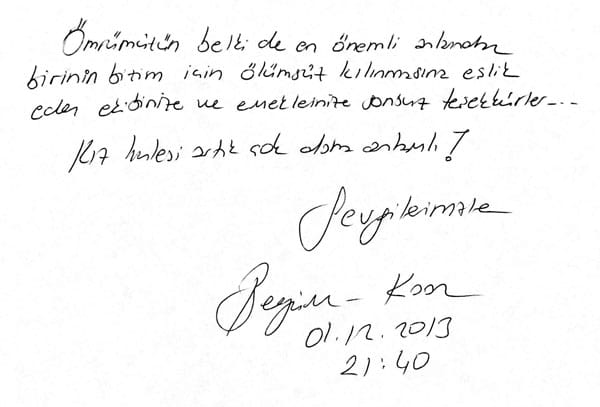 Ömrümüzün belki de en önemli anlarından
birinin bizim için ölümsüz kılınmasına eşlik
eden ekibinize ve emeklerinize sonsuz teşekkürler...
Kız kulesi artık çok daha anlamlı!
Sevgilerimizle
Begüm - Kaan
01.12.2013
21:40